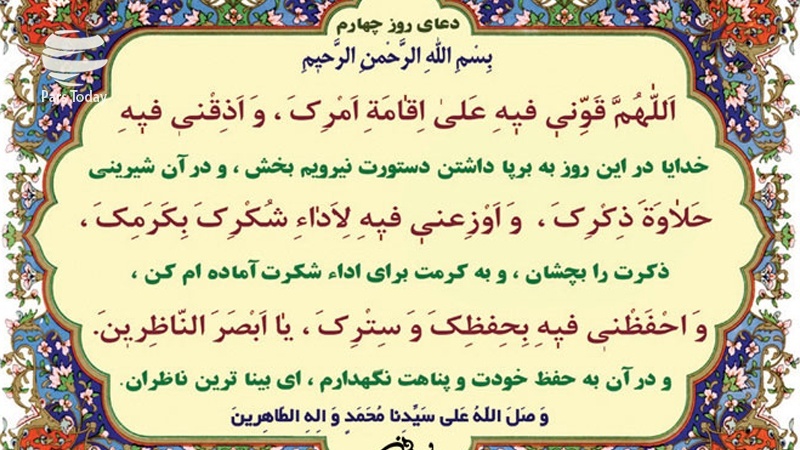 دعای روز چهارم
بِسْمِ اللهِ الرَّحْمنِ الرَّحیمِ
Pars Today
اَللّهُمَّ قَوِّنی فیهِ عَلیٰ اِقامَةِ اَمْرِکَ ، وَ اَذِقْنی فیهِ
خدایا در این روز به برپا داشتن دستورت نیرویم بخش ، و در آن شیرینی
حَلاوَةَ ذِکْرِکَ ، وَ اَوْزِعنی فیهِ لِاَداءِ شُکْرِکَ بِکَرَمِکَ ،
ذکرت را بچشان ، و به کرمت برای اداء شکرت آماده ام کن ،
وَ احْفَظْنی فیهِ بِحِفظِکَ وَ سِتْرِکَ ، یا اَبْصَرَ النّاظِرینَ.
و در آن به حفظ خودت و پناهت نگهدارم ، ای بینا ترین ناظران.
وَ صَلَ اللهُ عَلی سَیِّدِنا مُحَمَدٍ وَ الِهِ الطاهِرینَ